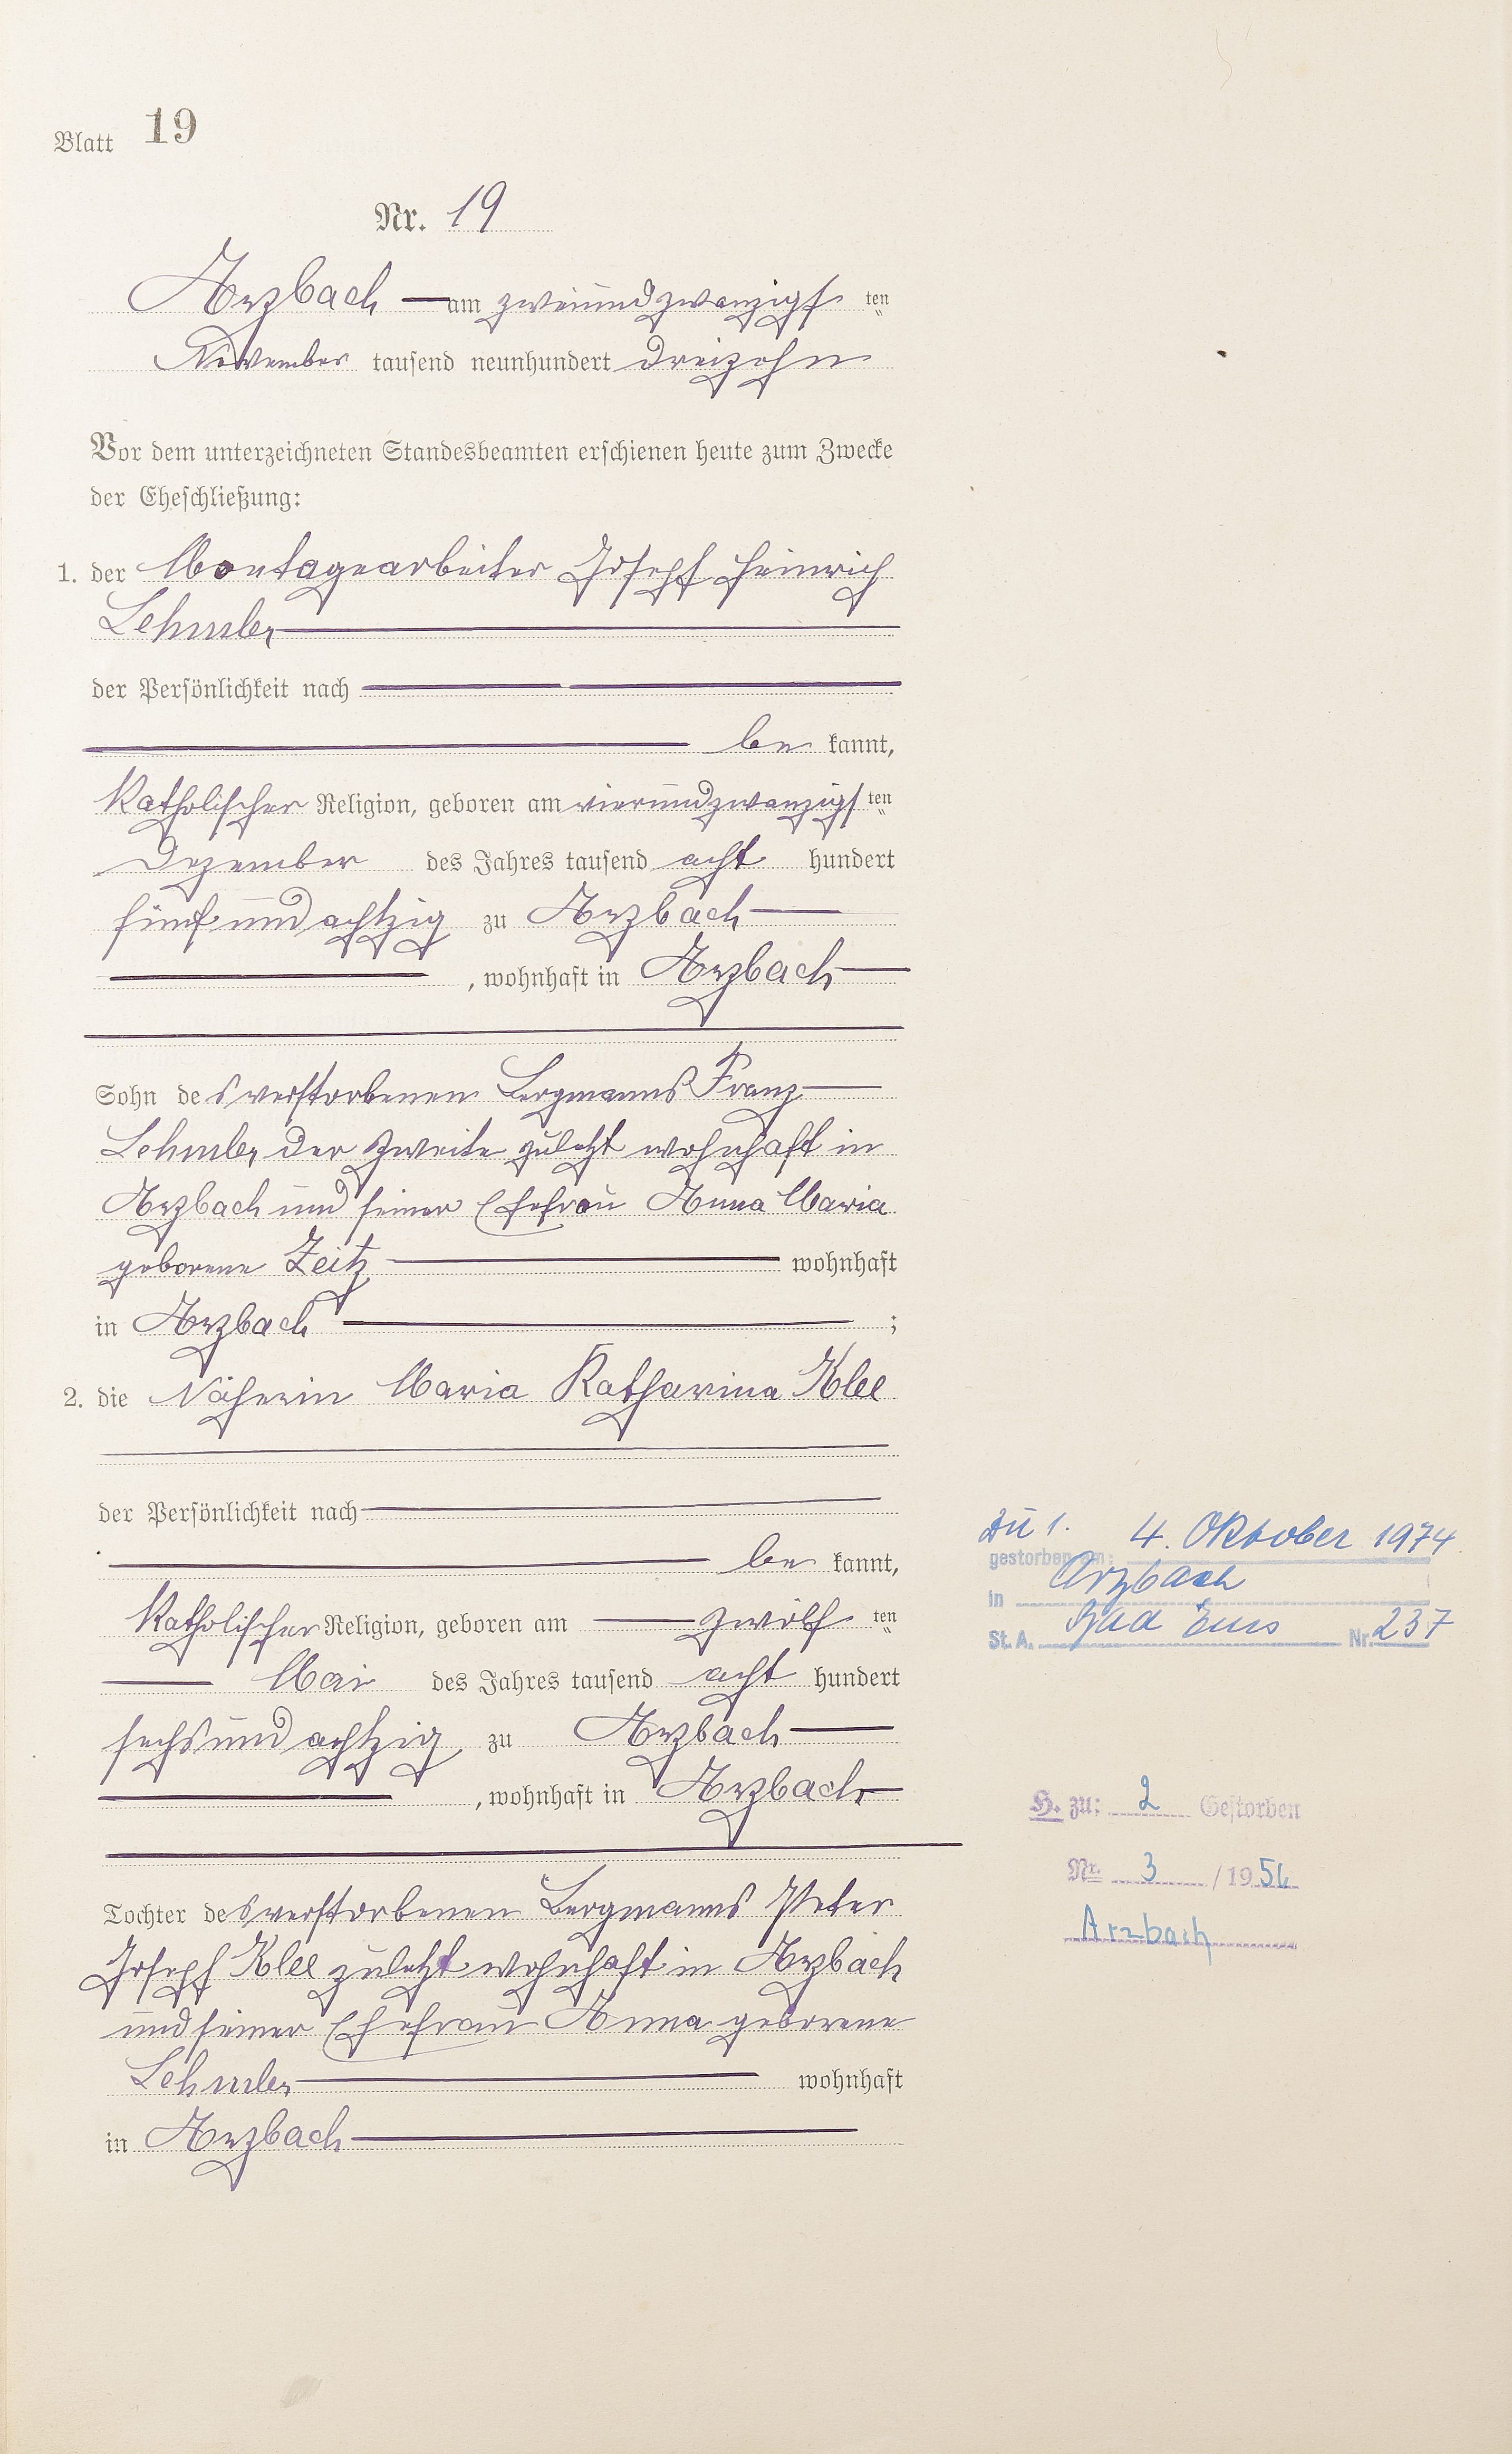 Blatt 19
Nr. 19
Arzbach am zweiundzwanzigsten
November tausend neunhundert dreizehn
Vor dem unterzeichneten Standesbeamten erschienen heute zum Zwecke
der Eheschließung:
1. der Montagearbeiter Joseph Heinrich
Lehmler
der Persönlichkeit nach
be kannt,
Katholischer Religion, geboren am vierundzwanzigsten
Dezember des Jahres tausend acht hundert
fünf und achtzig zu Arzbach
, wohnhaft in Arzbach
Sohn des verstorbenen Bergmanns Franz
Lehmler der Zweite zuletzt wohnhaft in
Arzbach und seiner Ehefrau Anna Maria
geborene Zeitz wohnhaft
in Arzbach ;
2. die Näherin Maria Katharina Klee
der Persönlichkeit nach
be kannt,
Katholischer Religion, geboren am zwölf ten
Mai des Jahres tausend acht hundert
sechs und achtzig zu Arzbach
, wohnhaft in Arzbach
Tochter des verstorbenen Bergmanns Peter
Joseph Klee zuletzt wohnhaft in Arzbach
und seiner Ehefrau Anna geborene
Lehmler wohnhaft
in Arzbach
Zu 1. 4. Oktober 1974
gestorben am:
in Arzbach
St. A. Bad Ems Nr. 237
H. zu: 2 Gestorben
Nr. 3 /1956
Arzbach